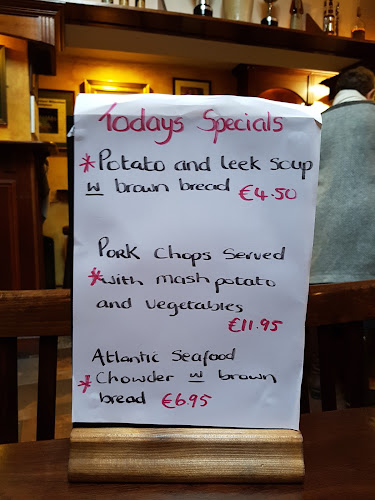 Todays Specials
*Potato and leek soup
w brown bread €4.50
Pork chops served
*with mash potato
and vegetables
€11.95
Atlantic Seafood
* Chowder w brown
bread €6.95